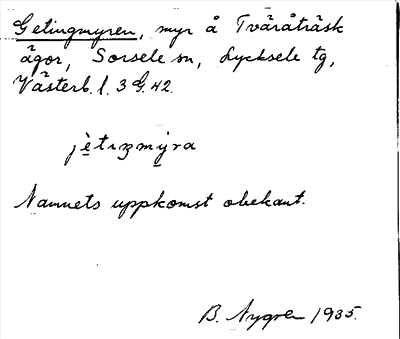 Getingmyren, myr å Tväråträsk
ägor, Sorsele sn, Lycksele tg,
Västerb. l. 3 G. 42.
jètɪŋmýra
Namnets uppkomst obekant.
B. Nygren 1935.